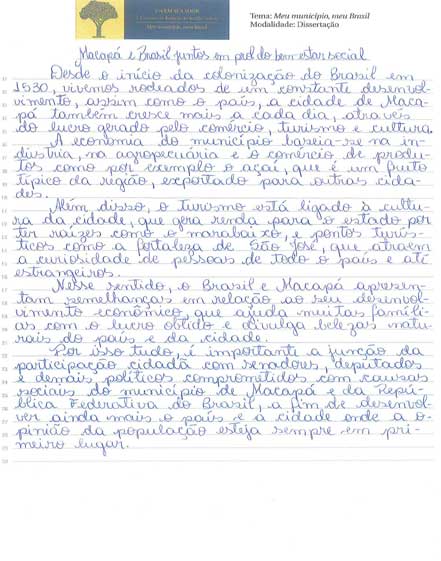 Tema: Meu município, meu Brasil
Modalidade: Dissertação
Macapá e Brasil juntos em prol do bem estar social
Desde o início da colonização do Brasil em
1530, vivemos rodeados de um constante desenvol-
vimento, assim como o país, a cidade de Maca-
pá também cresce mais a cada dia, através
do lucro gerado pelo comércio, turismo e cultura.
A economia do município baseia-se na in-
dústria, na agropecuária e o comércio de produ-
tos como por exemplo o açaí, que é um fruto
típico da região, exportado para outras cida-
des.
Além disso, o turismo está ligado à cultu-
ra da cidade, que gera renda para o estado por
ter raízes como o marabaixo, e pontos turís-
ticos como a fortaleza de São José, que atraem
a curiosidade de pessoas de todo o país e até
estrangeiros.
Nesse sentido, o Brasil e Macapá apresen-
tam semelhanças em relação ao seu desenvol-
vimento econômico, que ajuda muitas famíli-
as com o lucro obtido e divulga belezas natu-
rais do país e da cidade.
Por isso tudo, é importante a junção da
participação cidadã com senadores, deputados
e demais políticos comprometidos com causas
sociais do município de Macapá e da Repú-
blica Federativa do Brasil, a fim de desenvol-
ver ainda mais o país e a cidade onde a o-
pinião da população esteja sempre em pri-
meiro lugar.